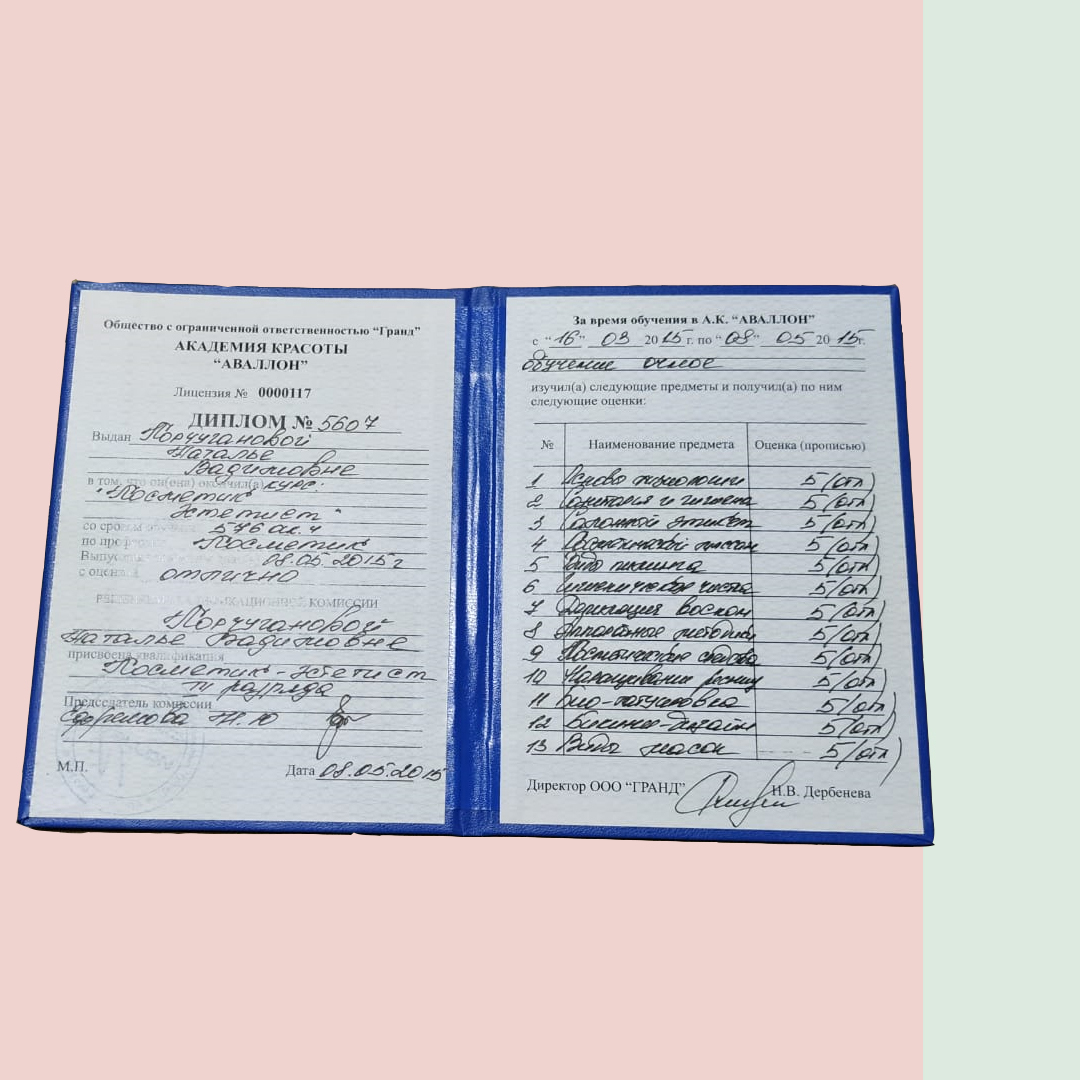 Общество с ограниченной ответственностью “Гранд”
АКАДЕМИЯ КРАСОТЫ
“АВАЛЛОН”
Лицензия № 0000117
ДИПЛОМ № 5607
Выдан
Наталье
Вадимовне
в том, что он(она) окончил(а) курс:
"Косметик
Эстетист"
со сроком 576 ак.ч
по Косметик
08.05.2015г
с оценкой отлично
КОМИССИИ
Наталье Вадимовне
присвоена квалификация
Косметик - Эстетист
III разряда
Председатель комиссии
Ефремова
М.П.
Дата 08.05.2015
За время обучения в А.К. “АВАЛЛОН”
с “16” 03 2015 г. по “08” 05 2015г.
обучение очное
изучил(а) следующие предметы и получил(а) по ним
следующие оценки:
№ Наименование предмета Оценка (прописью)
1 Основы технологии 5/(отл)
2 Санитария и гигиена 5/(отл)
3 Салонный этикет 5/(отл)
4 Косметический массаж 5/(отл)
5 Виды пилинга 5/(отл)
6 Гигиеническая чистка 5/(отл)
7 Депиляция воском 5/(отл)
8 Аппаратные методики 5/(отл)
9 Косметические средства 5/(отл)
10 Наращивание ресниц 5/(отл)
11 Био-татуировка 5/(отл)
12 Бикини-дизайн 5/(отл)
13 Виды масок 5/(отл)
Директор ООО “ГРАНД” Н.В. Дербенева